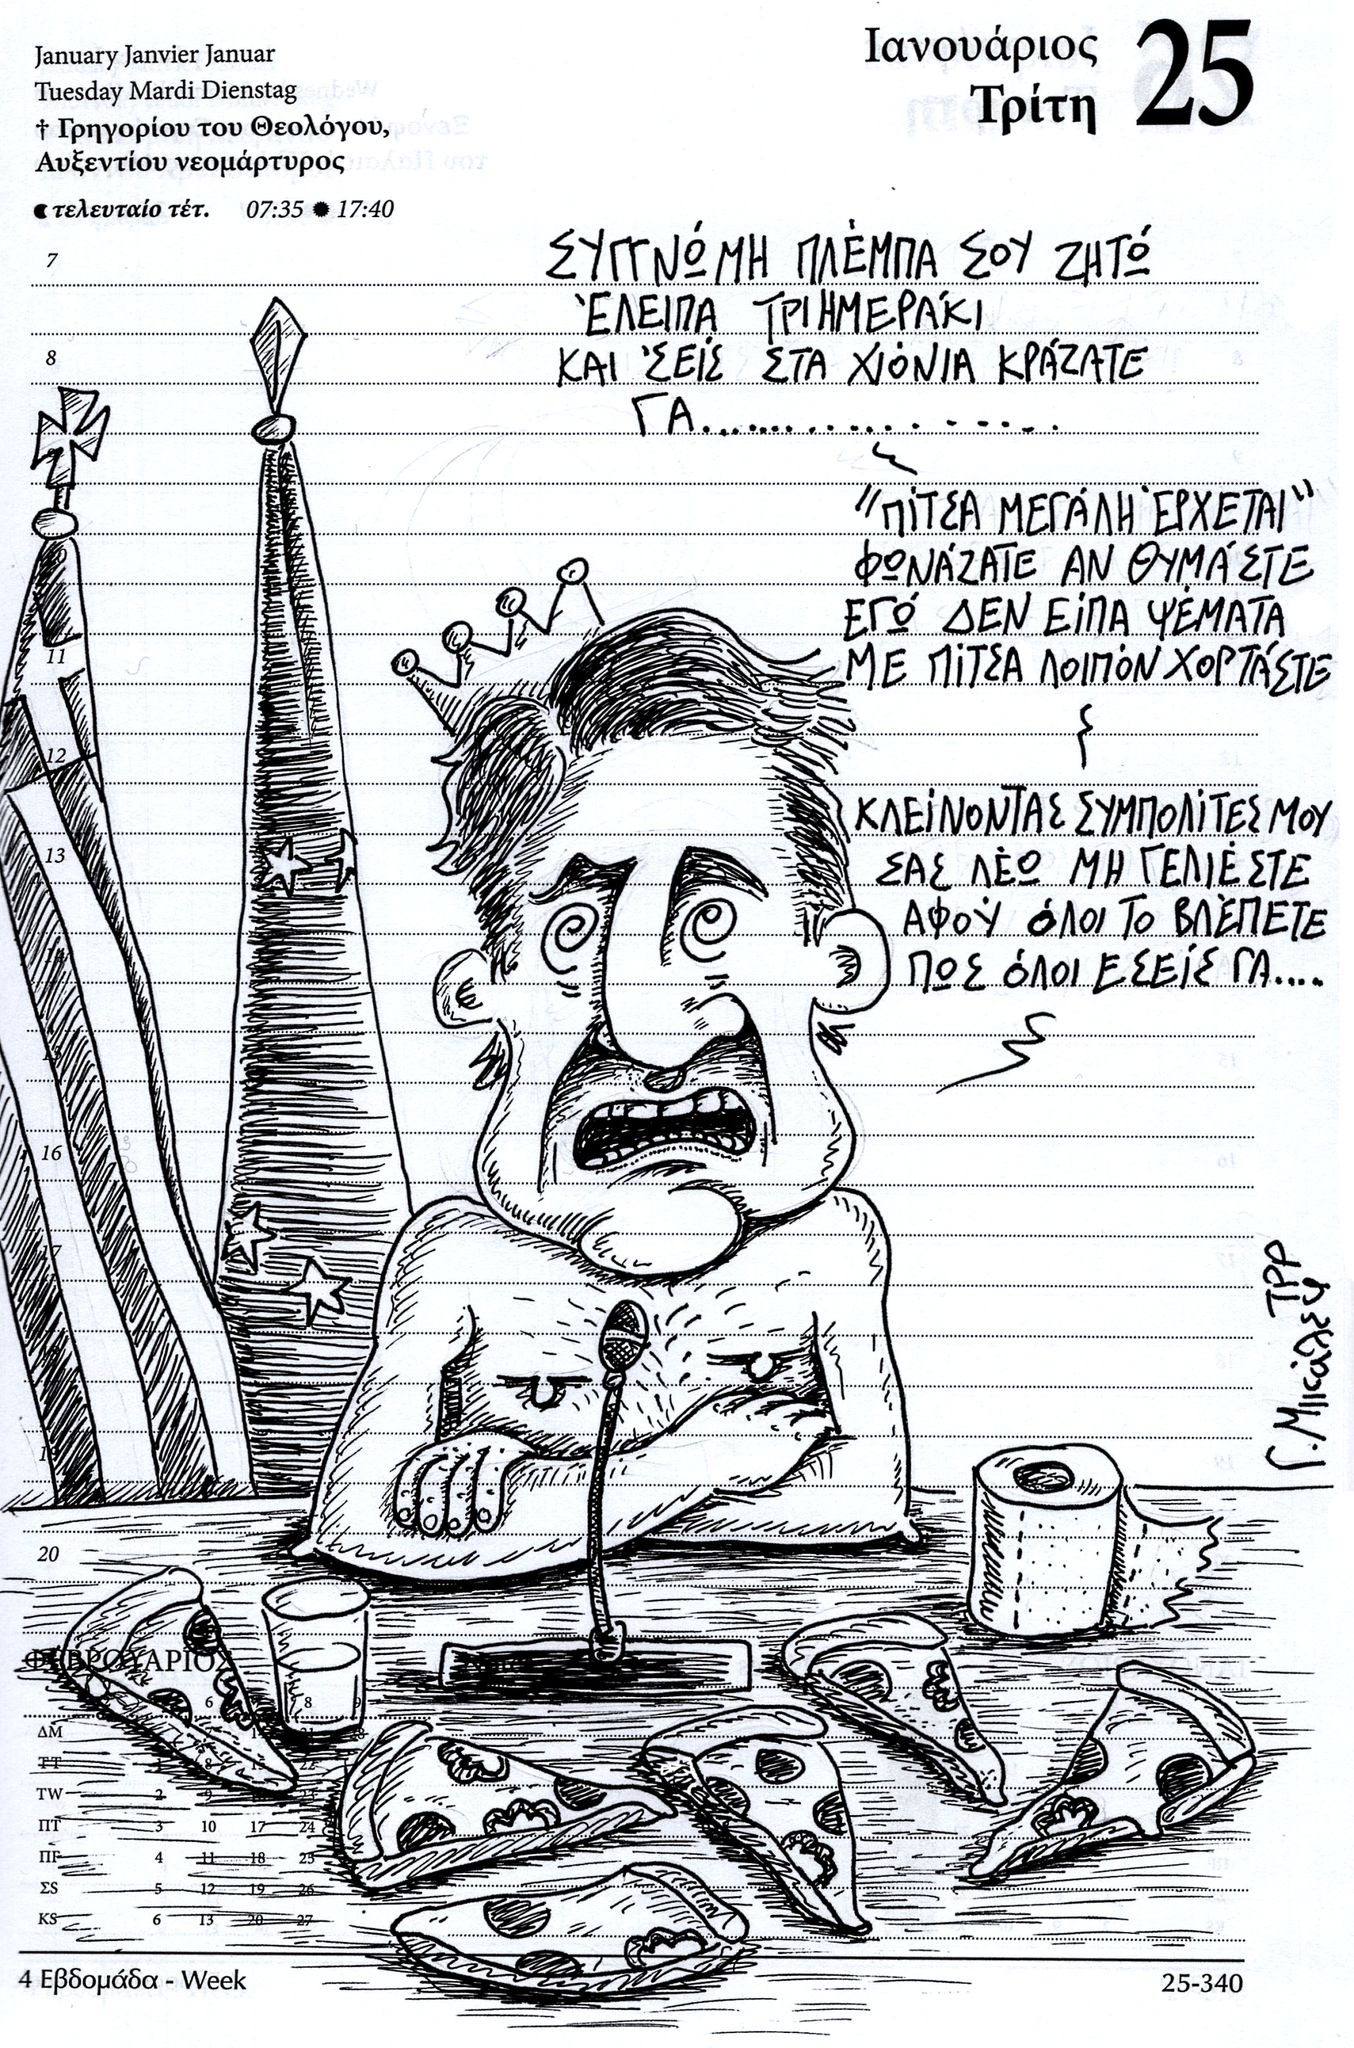 January Janvier Januar
Tuesday Mardi Dienstag
† Γρηγορίου του Θεολόγου,
Αυξεντίου νεομάρτυρος
τελευταίο τέτ. 07:35 17:40
Ιανουάριος
Τρίτη
25
ΣΥΓΓΝΏΜΗ ΠΛΈΜΠΑ ΣΟΥ ΖΗΤΏ
ΈΛΕΙΠΑ ΤΡΙΗΜΕΡΆΚΙ
ΚΑΙ 'ΣΕΙΣ ΣΤΑ ΧΙΌΝΙΑ ΚΡΆΖΑΤΕ
ΓΑ..................
"ΠΊΤΣΑ ΜΕΓΆΛΗ ΈΡΧΕΤΑΙ"
ΦΩΝΆΖΑΤΕ ΑΝ ΘΥΜΆΣΤΕ
ΕΓΏ ΔΕΝ ΕΊΠΑ ΨΈΜΑΤΑ
ΜΕ ΠΊΤΣΑ ΛΟΙΠΌΝ ΧΟΡΤΆΣΤΕ
ΚΛΕΊΝΟΝΤΑΣ ΣΥΜΠΟΛΊΤΕΣ ΜΟΥ
ΣΑΣ ΛΈΩ ΜΗ ΓΕΛΙΈΣΤΕ
ΑΦΟΎ ΌΛΟΙ ΤΟ ΒΛΈΠΕΤΕ
ΠΩΣ ΌΛΟΙ ΕΣΕΊΣ ΓΑ.....
7
8
11
12
13
16
17
20
Γ. Μικάλεψ
ΤΡΡ
ΦΕΒΡΟΥΑΡΙΟΣ
6 8 9
ΔΜ
ΤΤ 1 8 15 22
TW 2 9
ΠΤ 3 10 17 24
ΠF 4 11 18 25
ΣS 5 12 19 26
KS 6 13 20 27
4 Εβδομάδα - Week
25-340